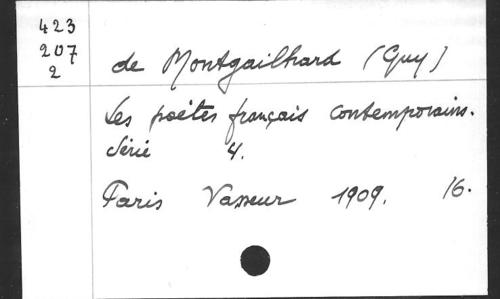 423
207
2
de Montgailhard (Guy)
Les poètes français contemporains.
Série 4.
Paris Vasseur 1909. 16.